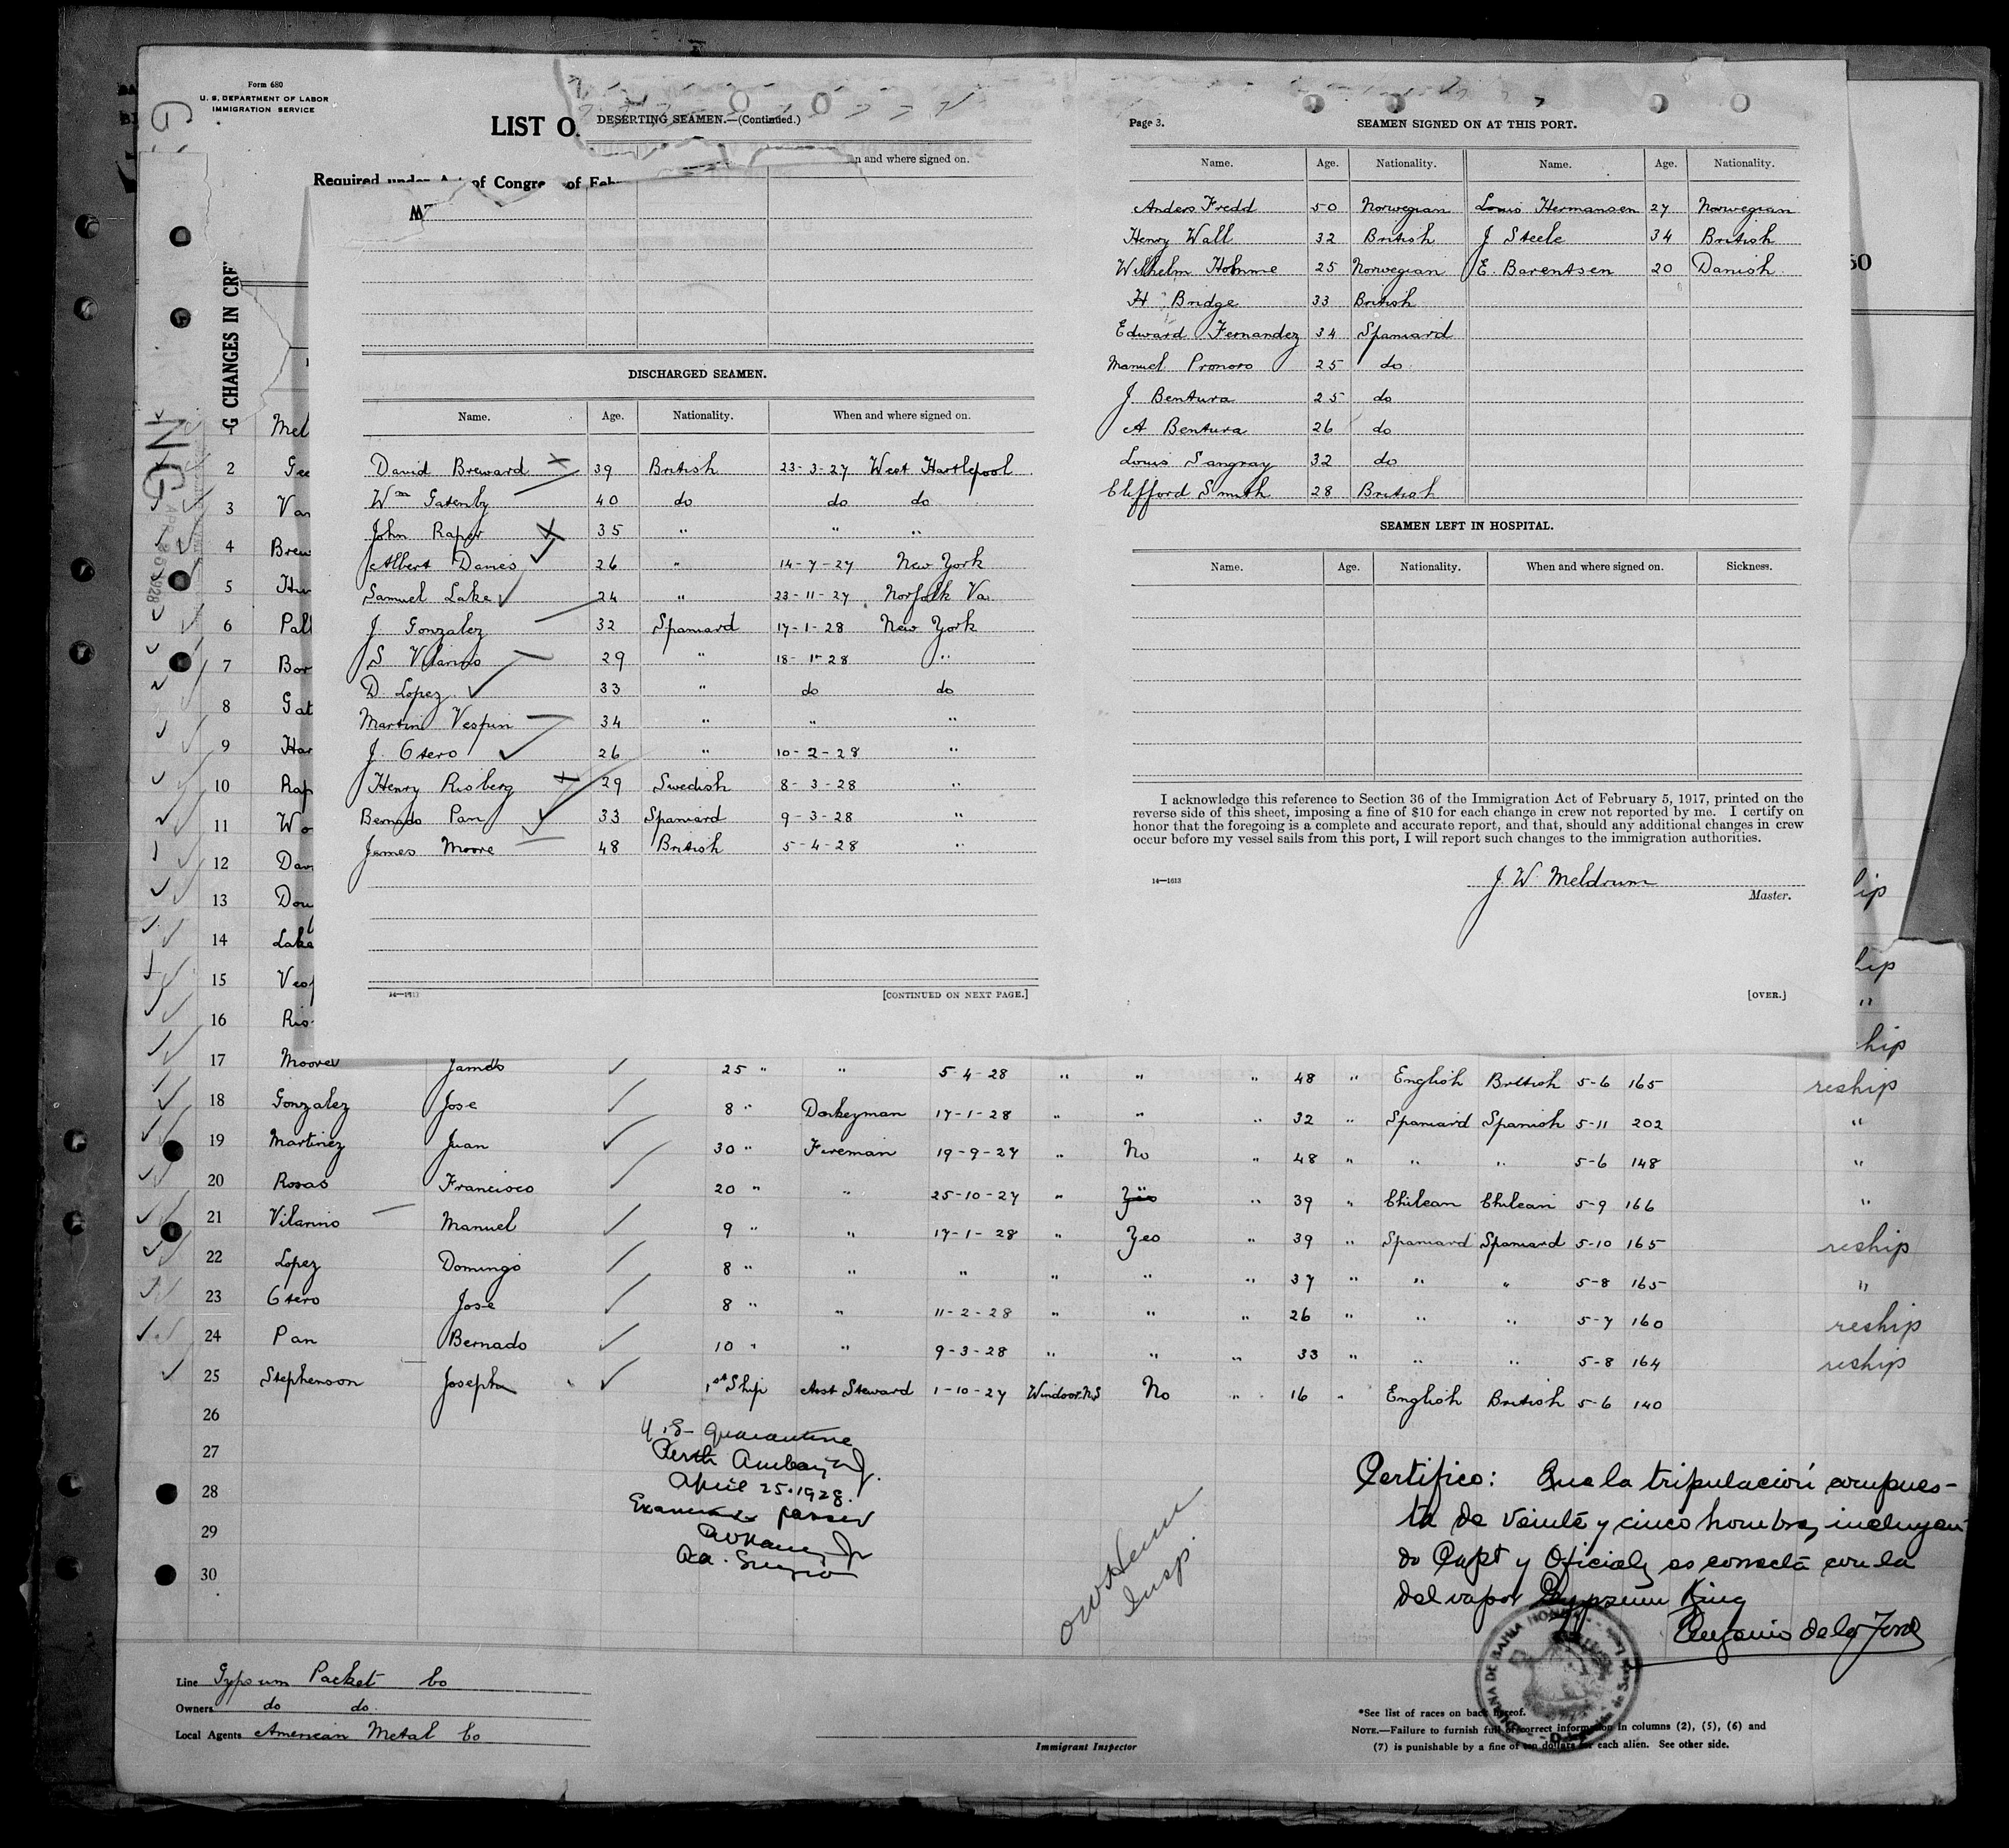 Form 680
U. S. DEPARTMENT OF LABOR
IMMIGRATION SERVICE
LIST O
Required under Act of Congre of Feb
G CHANGES IN CRE
DESERTING SEAMEN.—(Continued.)
n and where signed on.
DISCHARGED SEAMEN.
Name. Age. Nationality. When and where signed on.
David Breward 39 British 23-3-27 West Hartlepool
Wm Gatenby 40 do do do
John Raper 35 " " "
Albert Davies 26 " 14-7-27 New York
Samuel Lake 24 " 23-11-27 Norfolk Va.
J. Gonzalez 32 Spaniard 17-1-28 New York
S Vilarino 29 " 18-1-28 "
D. Lopez 33 " do do
Martin Vespin 34 " " "
J. Otero 26 " 10-2-28 "
Henry Risberg 29 Swedish 8-3-28 "
Bernado Pan 33 Spaniard 9-3-28 "
James Moore 48 British 5-4-28 "
14—1613 [CONTINUED ON NEXT PAGE.]
Page 3. SEAMEN SIGNED ON AT THIS PORT.
Name. Age. Nationality. Name. Age. Nationality.
Anders Fredd 50 Norwegian Louis Hermansen 27 Norwegian
Henry Wall 32 British J Steele 34 British
Wilhelm Holmme 25 Norwegian E. Barentsen 20 Danish
H Bridge 33 British
Edward Fernandez 34 Spaniard
Manuel Pronoro 25 do
J. Bentura 25 do
A Bentura 26 do
Louis Sangray 32 do
Clifford Smith 28 British
SEAMEN LEFT IN HOSPITAL.
Name. Age. Nationality. When and where signed on. Sickness.
I acknowledge this reference to Section 36 of the Immigration Act of February 5, 1917, printed on the
reverse side of this sheet, imposing a fine of $10 for each change in crew not reported by me. I certify on
honor that the foregoing is a complete and accurate report, and that, should any additional changes in crew
occur before my vessel sails from this port, I will report such changes to the immigration authorities.
14—1613 J. W Meldrum
Master.
[OVER.]
1 Mel
2 Gee
3 Var
4 Brew
5 Hu
6 Pall
7 Bor
8 Gat
9 Har
10 Rap
11 Wo
12 Dav
13 Dou
14 Lake
15 Vesp
16 Ris
17 Moore James 25 " " 5-4-28 " " " 48 " English British 5-6 165 reship
18 Gonzalez Jose 8 " Donkeyman 17-1-28 " " " 32 " Spaniard Spanish 5-11 202 "
19 Martinez Juan 30 " Fireman 19-9-27 " No " 48 " " " 5-6 148 "
20 Rosas Francisco 20 " " 25-10-27 " Yes " 39 " Chilean Chilean 5-9 166 "
21 Vilarino Manuel 9 " " 17-1-28 " Yes " 39 " Spaniard Spaniard 5-10 165 reship
22 Lopez Domingo 8 " " " " " " 37 " " " 5-8 165 "
23 Otero Jose 8 " " 11-2-28 " " " 26 " " " 5-7 160 reship
24 Pan Bernado 10 " " 9-3-28 " " " 33 " " " 5-8 164 reship
25 Stephenson Joseph 1st Ship Asst Steward 1-10-27 Windsor N.S No " 16 " English British 5-6 140
26
27
28
29
30
U.S. Quarantine
Perth Amboy N.J.
April 25. 1928.
Examined passed
Surgeon
Insp.
Certifico: Que la tripulación compues-
ta de veinte y cinco hombres, incluyen
do Capt y Oficiales es correcta con la
del vapor Gypsum King
Line Gypsum Packet Co
Owners do do.
Local Agents American Metal Co
Immigrant Inspector
*See list of races on back hereof.
NOTE.—Failure to furnish full or correct information in columns (2), (5), (6) and
(7) is punishable by a fine of ten dollars for each alien. See other side.